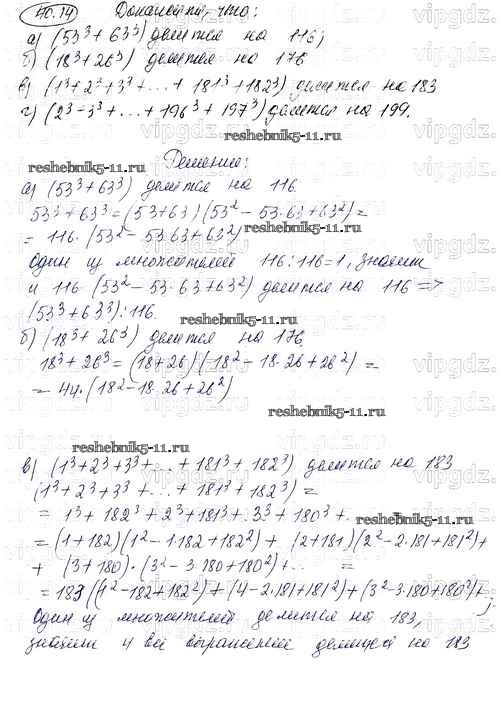 40.14 Доказать, что:
а) (53³ + 63³) делится на 116;
б) (18³ + 26³) делится на 176
в) (1³ + 2³ + 3³ + ... + 181³ + 182³) делится на 183
г) (2³ - 3³ + ... + 196³ + 197³) делится на 199.
reshebnik5-11.ru
Решение:
reshebnik5-11.ru
а) (53³ + 63³) делится на 116.
53³ + 63³ = (53 + 63)(53² - 53·63 + 63²) =
reshebnik5-11.ru
= 116·(53² - 53·63 + 63²)
Один из множителей 116 : 116 = 1, значит
и 116 (53² - 53·63 + 63²) делится на 116 =>
(53³ + 63³) : 116.
reshebnik5-11.ru
б) (18³ + 26³) делится на 176
18³ + 26³ = (18 + 26)(18² - 18·26 + 26²) =
= 44·(18² - 18·26 + 26²)
reshebnik5-11.ru
reshebnik5-11.ru
в) (1³ + 2³ + 3³ + ... + 181³ + 182³) делится на 183
(1³ + 2³ + 3³ + ... + 181³ + 182³) =
= 1³ + 182³ + 2³ + 181³ + 3³ + 180³ + ... =
reshebnik5-11.ru
= (1 + 182)(1² - 1·182 + 182²) + (2 + 181)(2² - 2·181 + 181²) +
+ (3 + 180)·(3² - 3·180 + 180²) + ... =
= 183 ((1² - 182 + 182²) + (4 - 2·181 + 181²) + (3² - 3·180 + 180²) + ...;
Один из множителей делится на 183,
значит и всё выражение делится на 183
vipgdz.ru